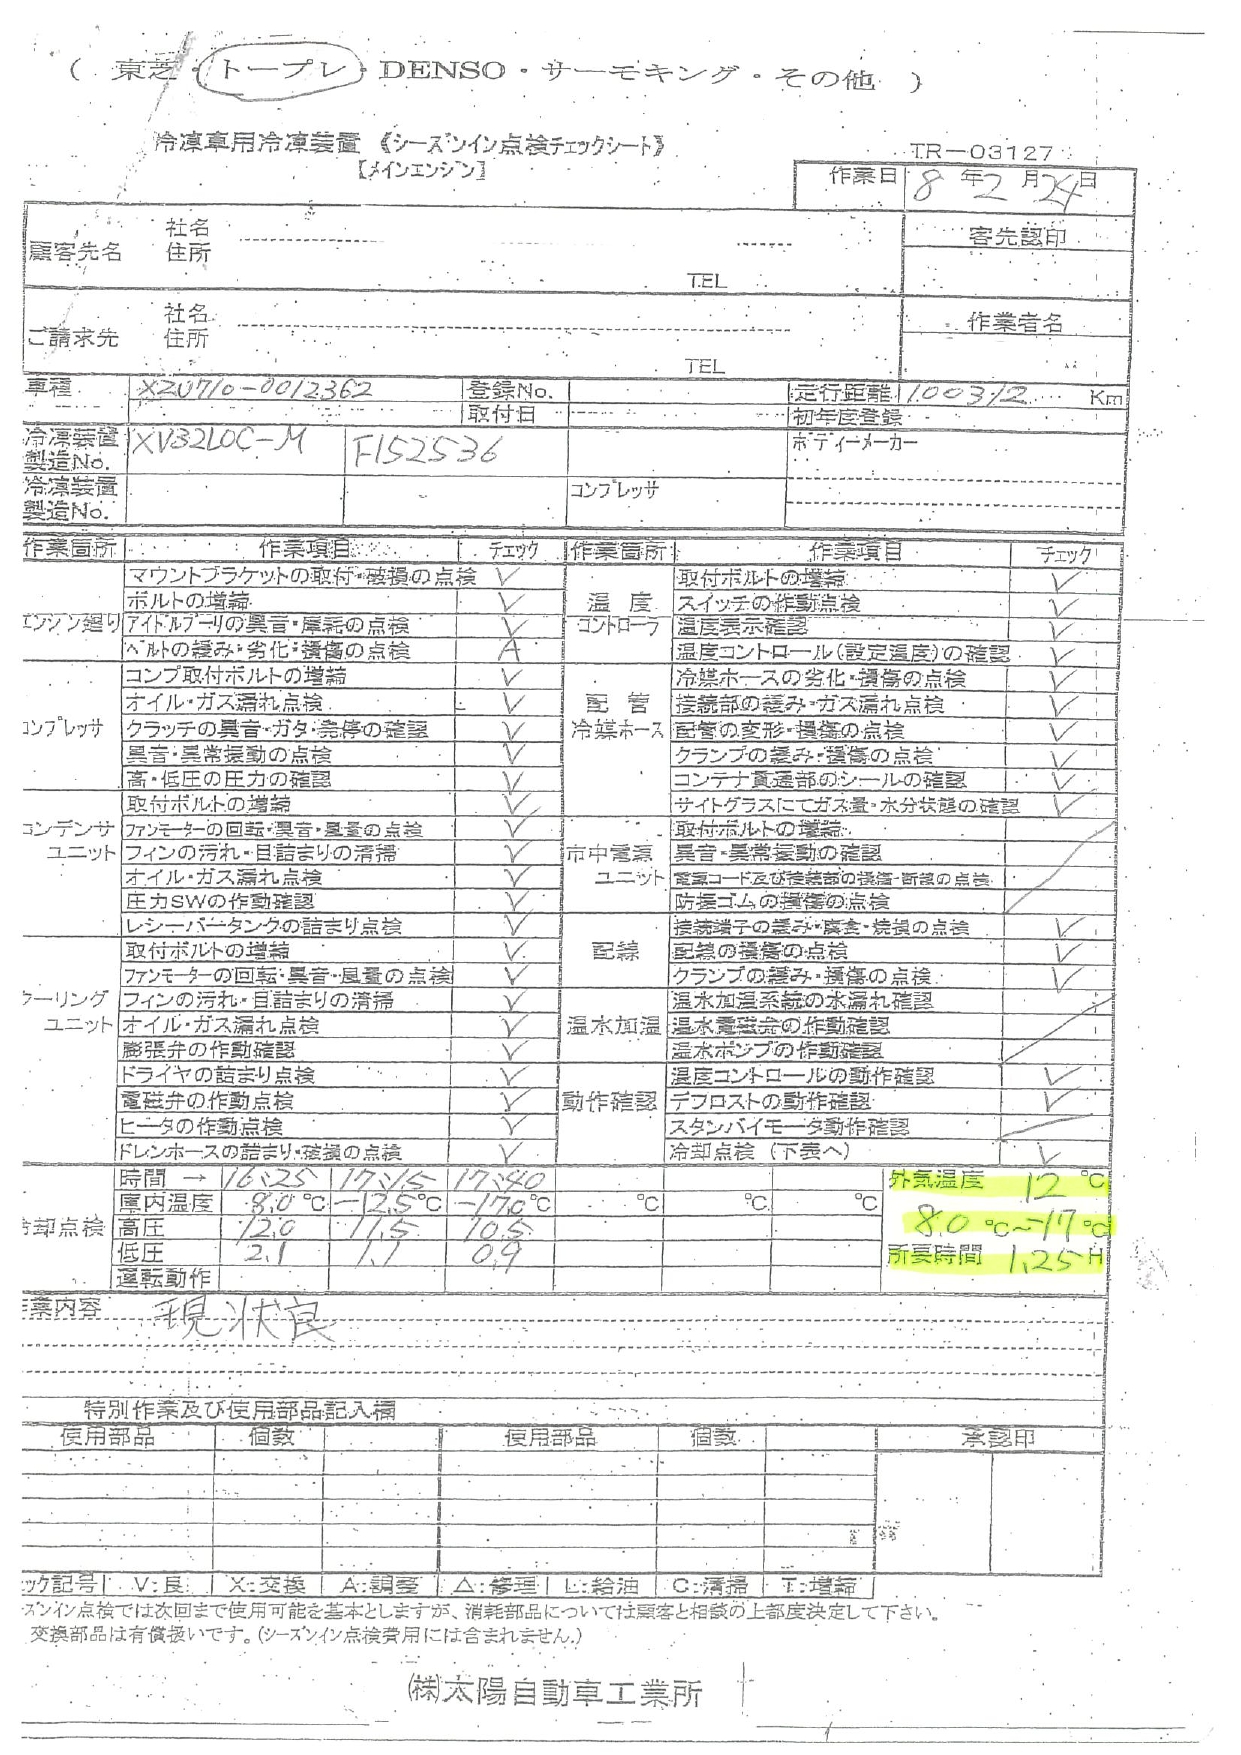 ( 東芝・トープレ・DENSO・サーモキング・その他 )
冷凍車用冷凍装置 《シーズンイン点検チェックシート》
【メインエンジン】
TR－03127
作業日 8 年 2 月 24 日
顧客先名 社名
住所
TEL
客先認印
ご請求先 社名
住所
TEL
作業者名
車種 XZU710-0012362 登録No. 走行距離 100312 Km
取付日 初年度登録
冷凍装置 製造No. XV32LOC-M F152536 ボディーメーカー
冷凍装置 製造No. コンプレッサ
作業箇所 作業項目 チェック 作業箇所 作業項目 チェック
マウントブラケットの取付・破損の点検 V 取付ボルトの増締 V
ボルトの増締 V 温度 スイッチの作動点検 V
エンジン廻り アイドルプーリの異音・摩耗の点検 V コントローラ 温度表示確認 V
ベルトの緩み・劣化・損傷の点検 A 温度コントロール(設定温度)の確認 V
コンプ取付ボルトの増締 V 冷媒ホースの劣化・損傷の点検 V
オイル・ガス漏れ点検 V 配管 接続部の緩み・ガス漏れ点検 V
コンプレッサ クラッチの異音・ガタ・発停の確認 V 冷媒ホース 配管の変形・損傷の点検 V
異音・異常振動の点検 V クランプの緩み・損傷の点検 V
高・低圧の圧力の確認 V コンテナ貫通部のシールの確認 V
取付ボルトの増締 V サイトグラスにてガス量・水分状態の確認 V
コンデンサ ファンモーターの回転・異音・風量の点検 V 取付ボルトの増締
ユニット フィンの汚れ・目詰まりの清掃 V 市中電源 異音・異常振動の確認
オイル・ガス漏れ点検 V ユニット 電源コード及び接続部の損傷・断線の点検
圧力SWの作動確認 V 防振ゴムの損傷の点検
レシーバータンクの詰まり点検 V 接続端子の緩み・腐食・焼損の点検 V
取付ボルトの増締 V 配線 配線の損傷の点検 V
ファンモーターの回転・異音・風量の点検 V クランプの緩み・損傷の点検 V
クーリング フィンの汚れ・目詰まりの清掃 V 温水加温系統の水漏れ確認
ユニット オイル・ガス漏れ点検 V 温水加温 温水電磁弁の作動確認
膨張弁の作動確認 V 温水ポンプの作動確認
ドライヤの詰まり点検 V 温度コントロールの動作確認 V
電磁弁の作動点検 V 動作確認 デフロストの動作確認 V
ヒータの作動点検 V スタンバイモータ動作確認
ドレンホースの詰まり・破損の点検 V 冷却点検 (下表へ) V
時間 → 16:25 17:15 17:40 外気温度 12 ℃
庫内温度 8.0 ℃ -12.5 ℃ -17.0 ℃ ℃ ℃ ℃
冷却点検 高圧 12.0 11.5 10.5 8.0 ℃～-17 ℃
低圧 2.1 1.1 0.9 所要時間 1.25 H
運転動作
作業内容 現状良
特別作業及び使用部品記入欄
使用部品 個数 使用部品 個数 承認印
ック記号 V:良 X:交換 A:調整 △:修理 L:給油 C:清掃 T:増締
ーズンイン点検では次回まで使用可能を基本としますが、消耗部品については顧客と相談の上都度決定して下さい。
交換部品は有償扱いです。(シーズンイン点検費用には含まれません。)
(株)太陽自動車工業所